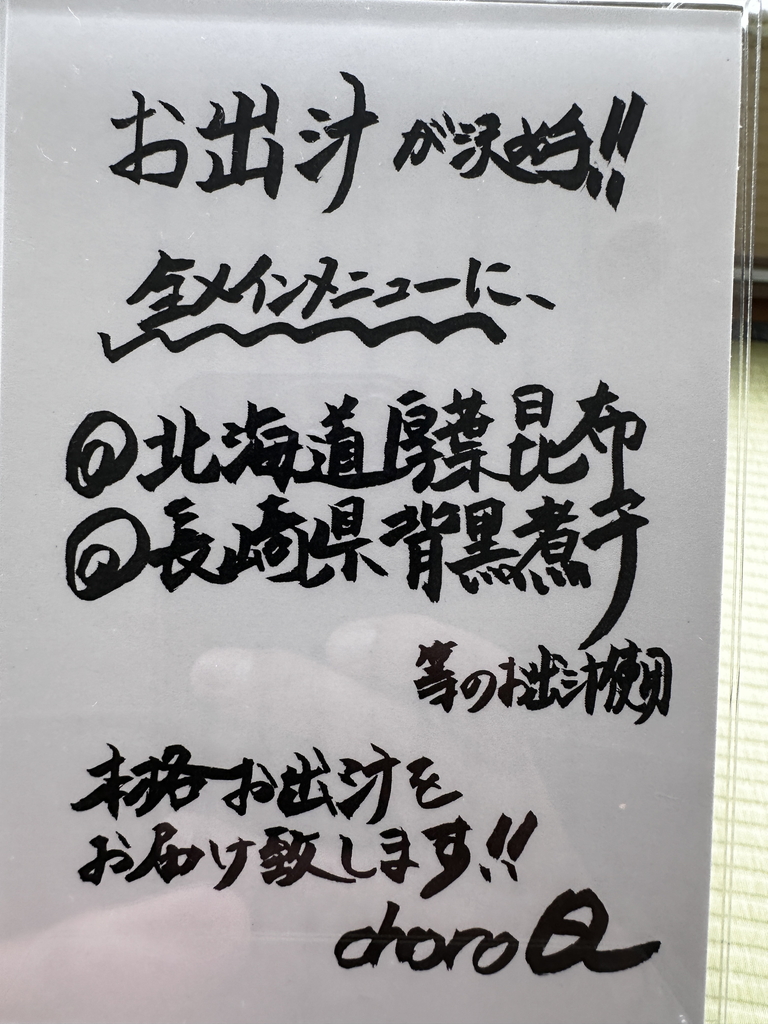 お出汁が決め手!!
全メインメニューに、
北海道厚葉昆布
長崎県背黒煮干
等のお出汁使用
本格お出汁を
お届け致します!!
choroQ